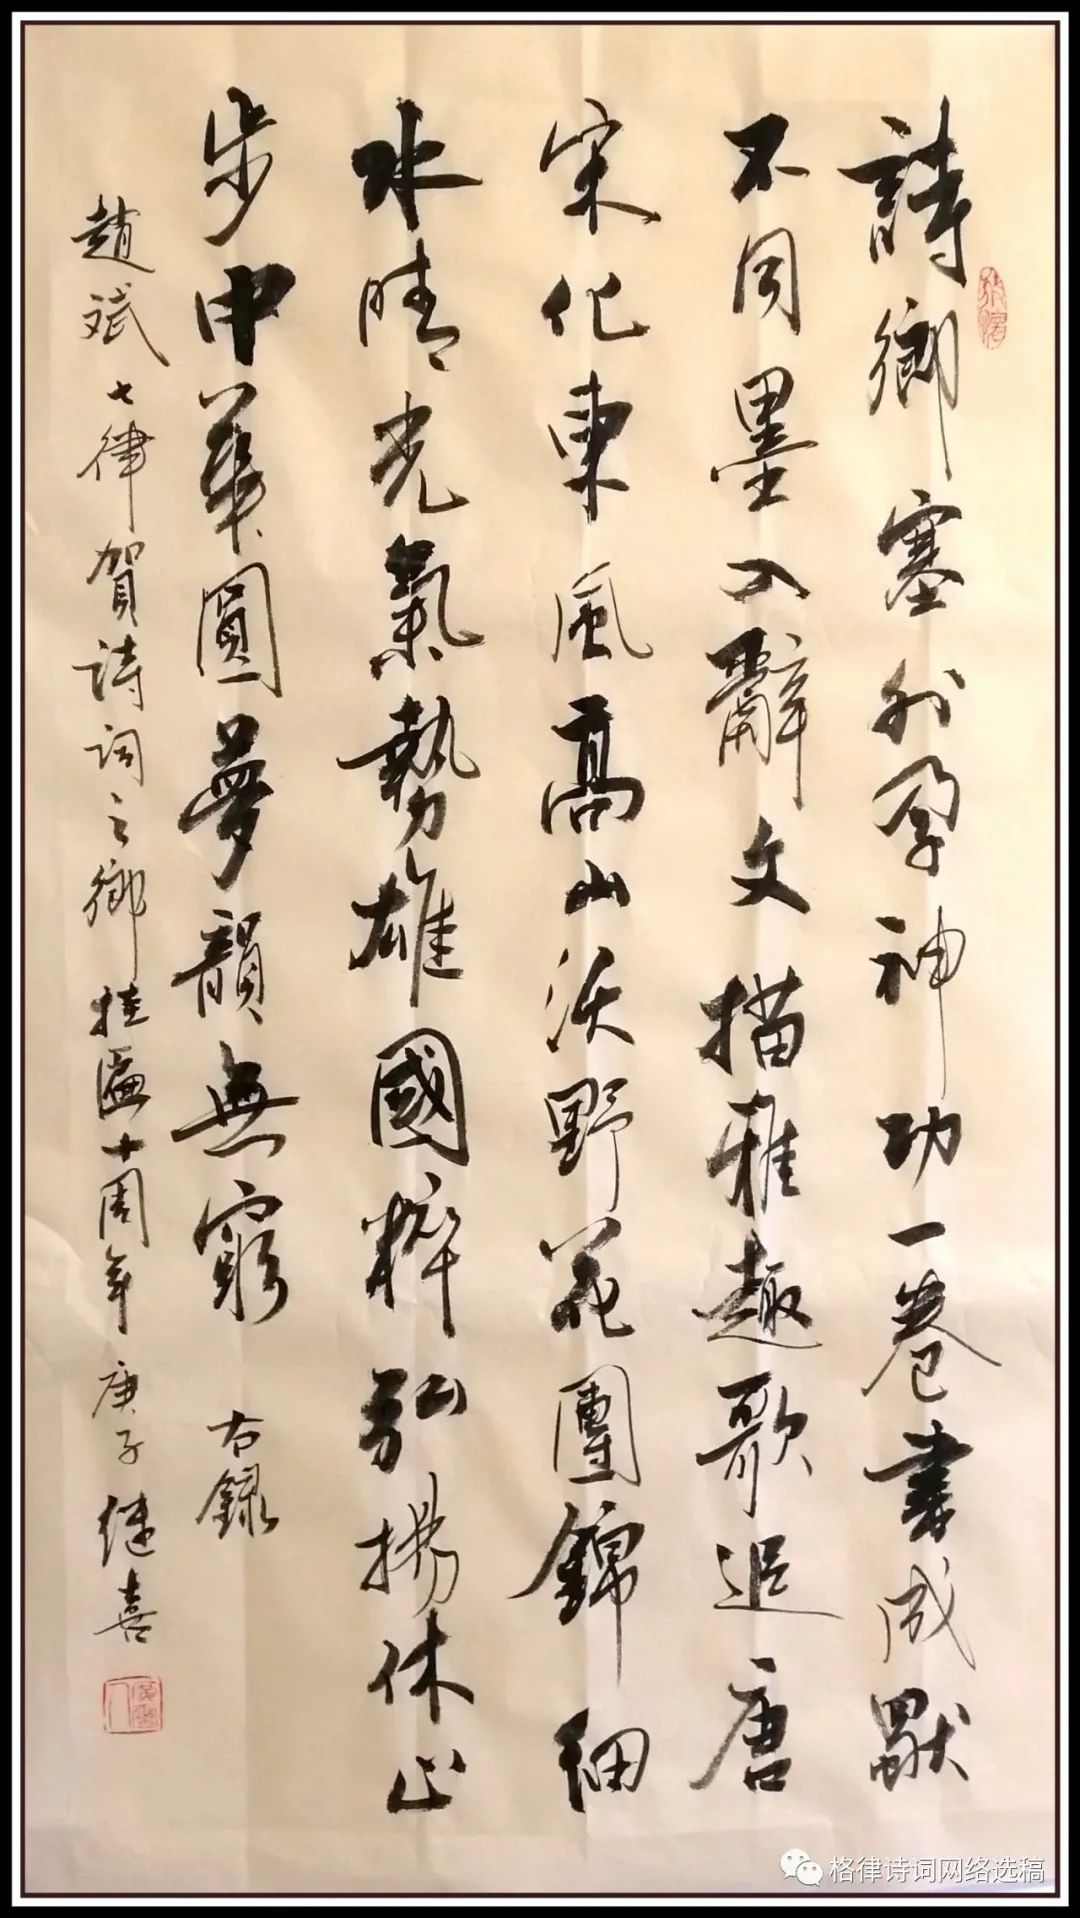 詩鄉塞外孕神功一卷書成獸
不同墨入辭文描雅趣歌追唐
宋化東風高山沃野花團錦細
水晴光氣勢雄國粹弘揚休止
步中華圓夢韻無窮 右錄
趙斌七律賀詩词之鄉挂匾十周年 庚子继喜
格律诗词网络选稿